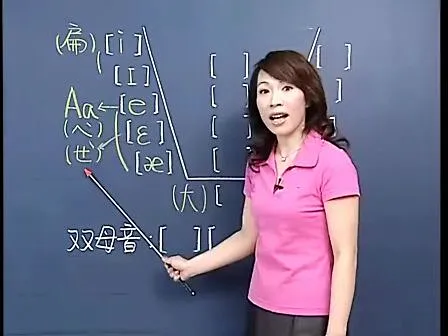 (扁) [i] [ ]
[I] [ ] [ ]
Aa ← [e] [ ]
(ㄟ) [ɛ] [ ]
(ㄝ) [æ] [
(大) [
双母音:[ ] [